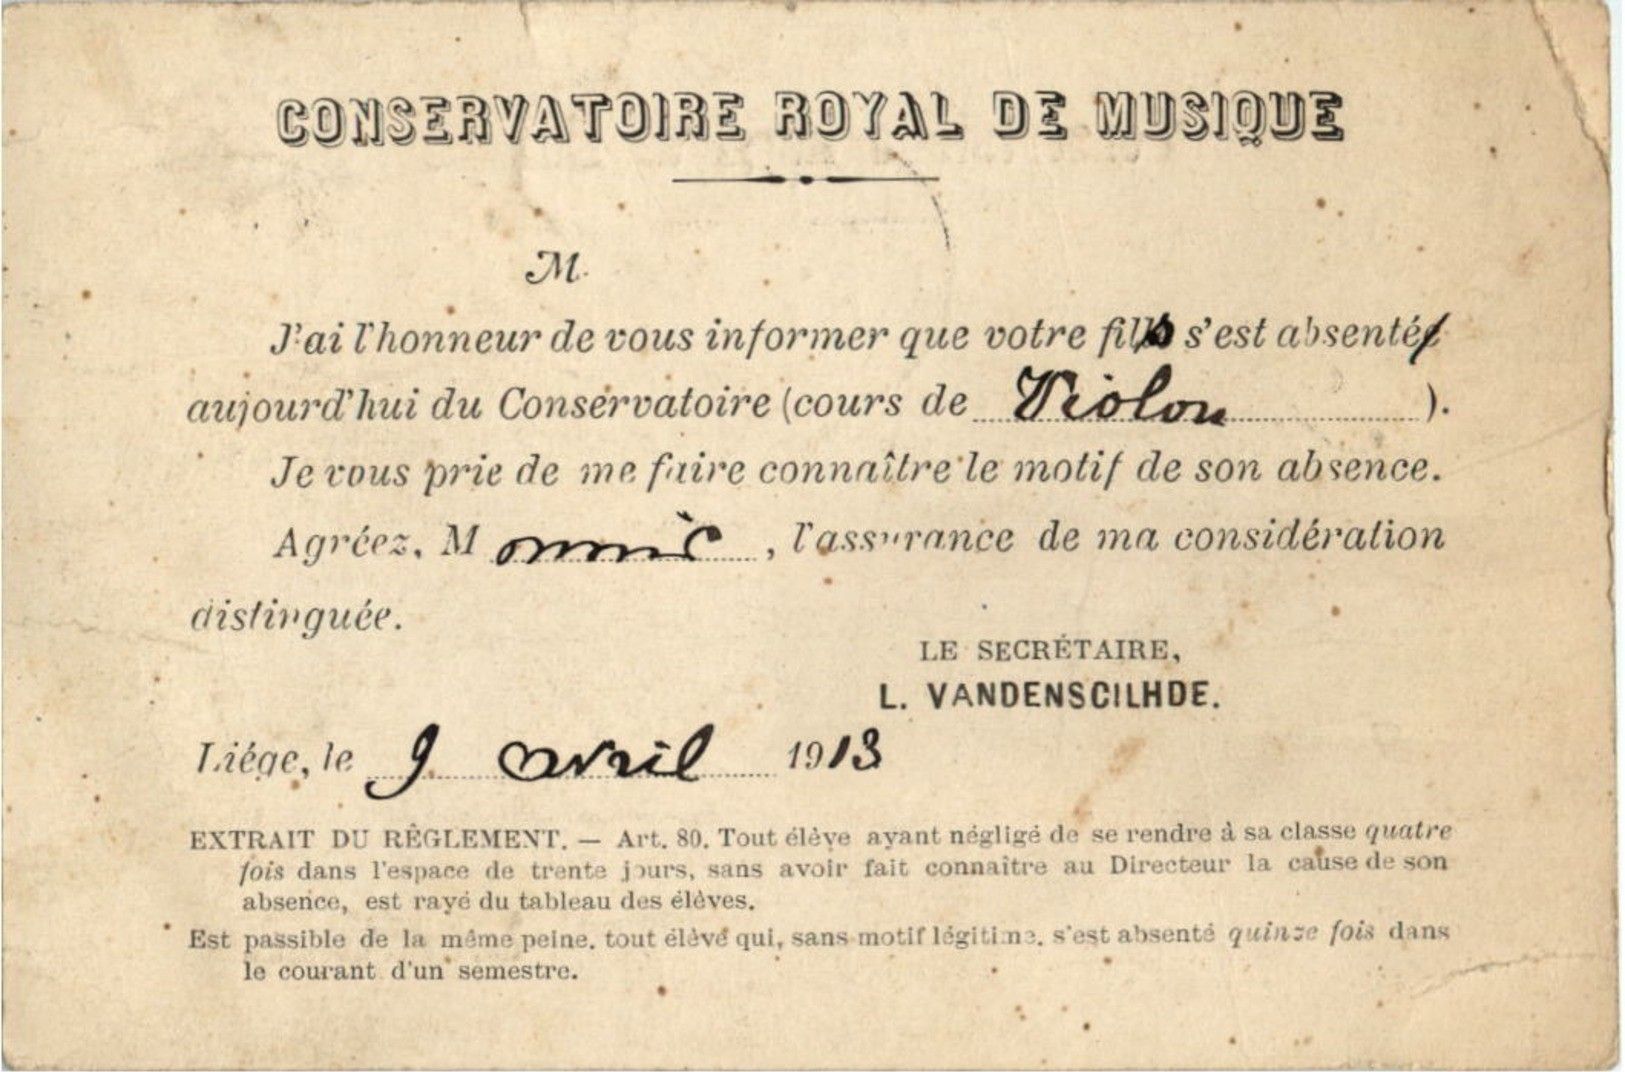 CONSERVATOIRE ROYAL DE MUSIQUE
M.
J'ai l'honneur de vous informer que votre fils s'est absenté
aujourd'hui du Conservatoire (cours de Violon ).
Je vous prie de me faire connaître le motif de son absence.
Agréez, M , l'assurance de ma considération
distinguée.
LE SECRÉTAIRE,
L. VANDENSCILHDE.
Liége, le 9 avril 1913
EXTRAIT DU RÈGLEMENT. — Art. 80. Tout élève ayant négligé de se rendre à sa classe quatre
fois dans l'espace de trente jours, sans avoir fait connaître au Directeur la cause de son
absence, est rayé du tableau des élèves.
Est passible de la même peine, tout élève qui, sans motif légitime, s'est absenté quinze fois dans
le courant d'un semestre.